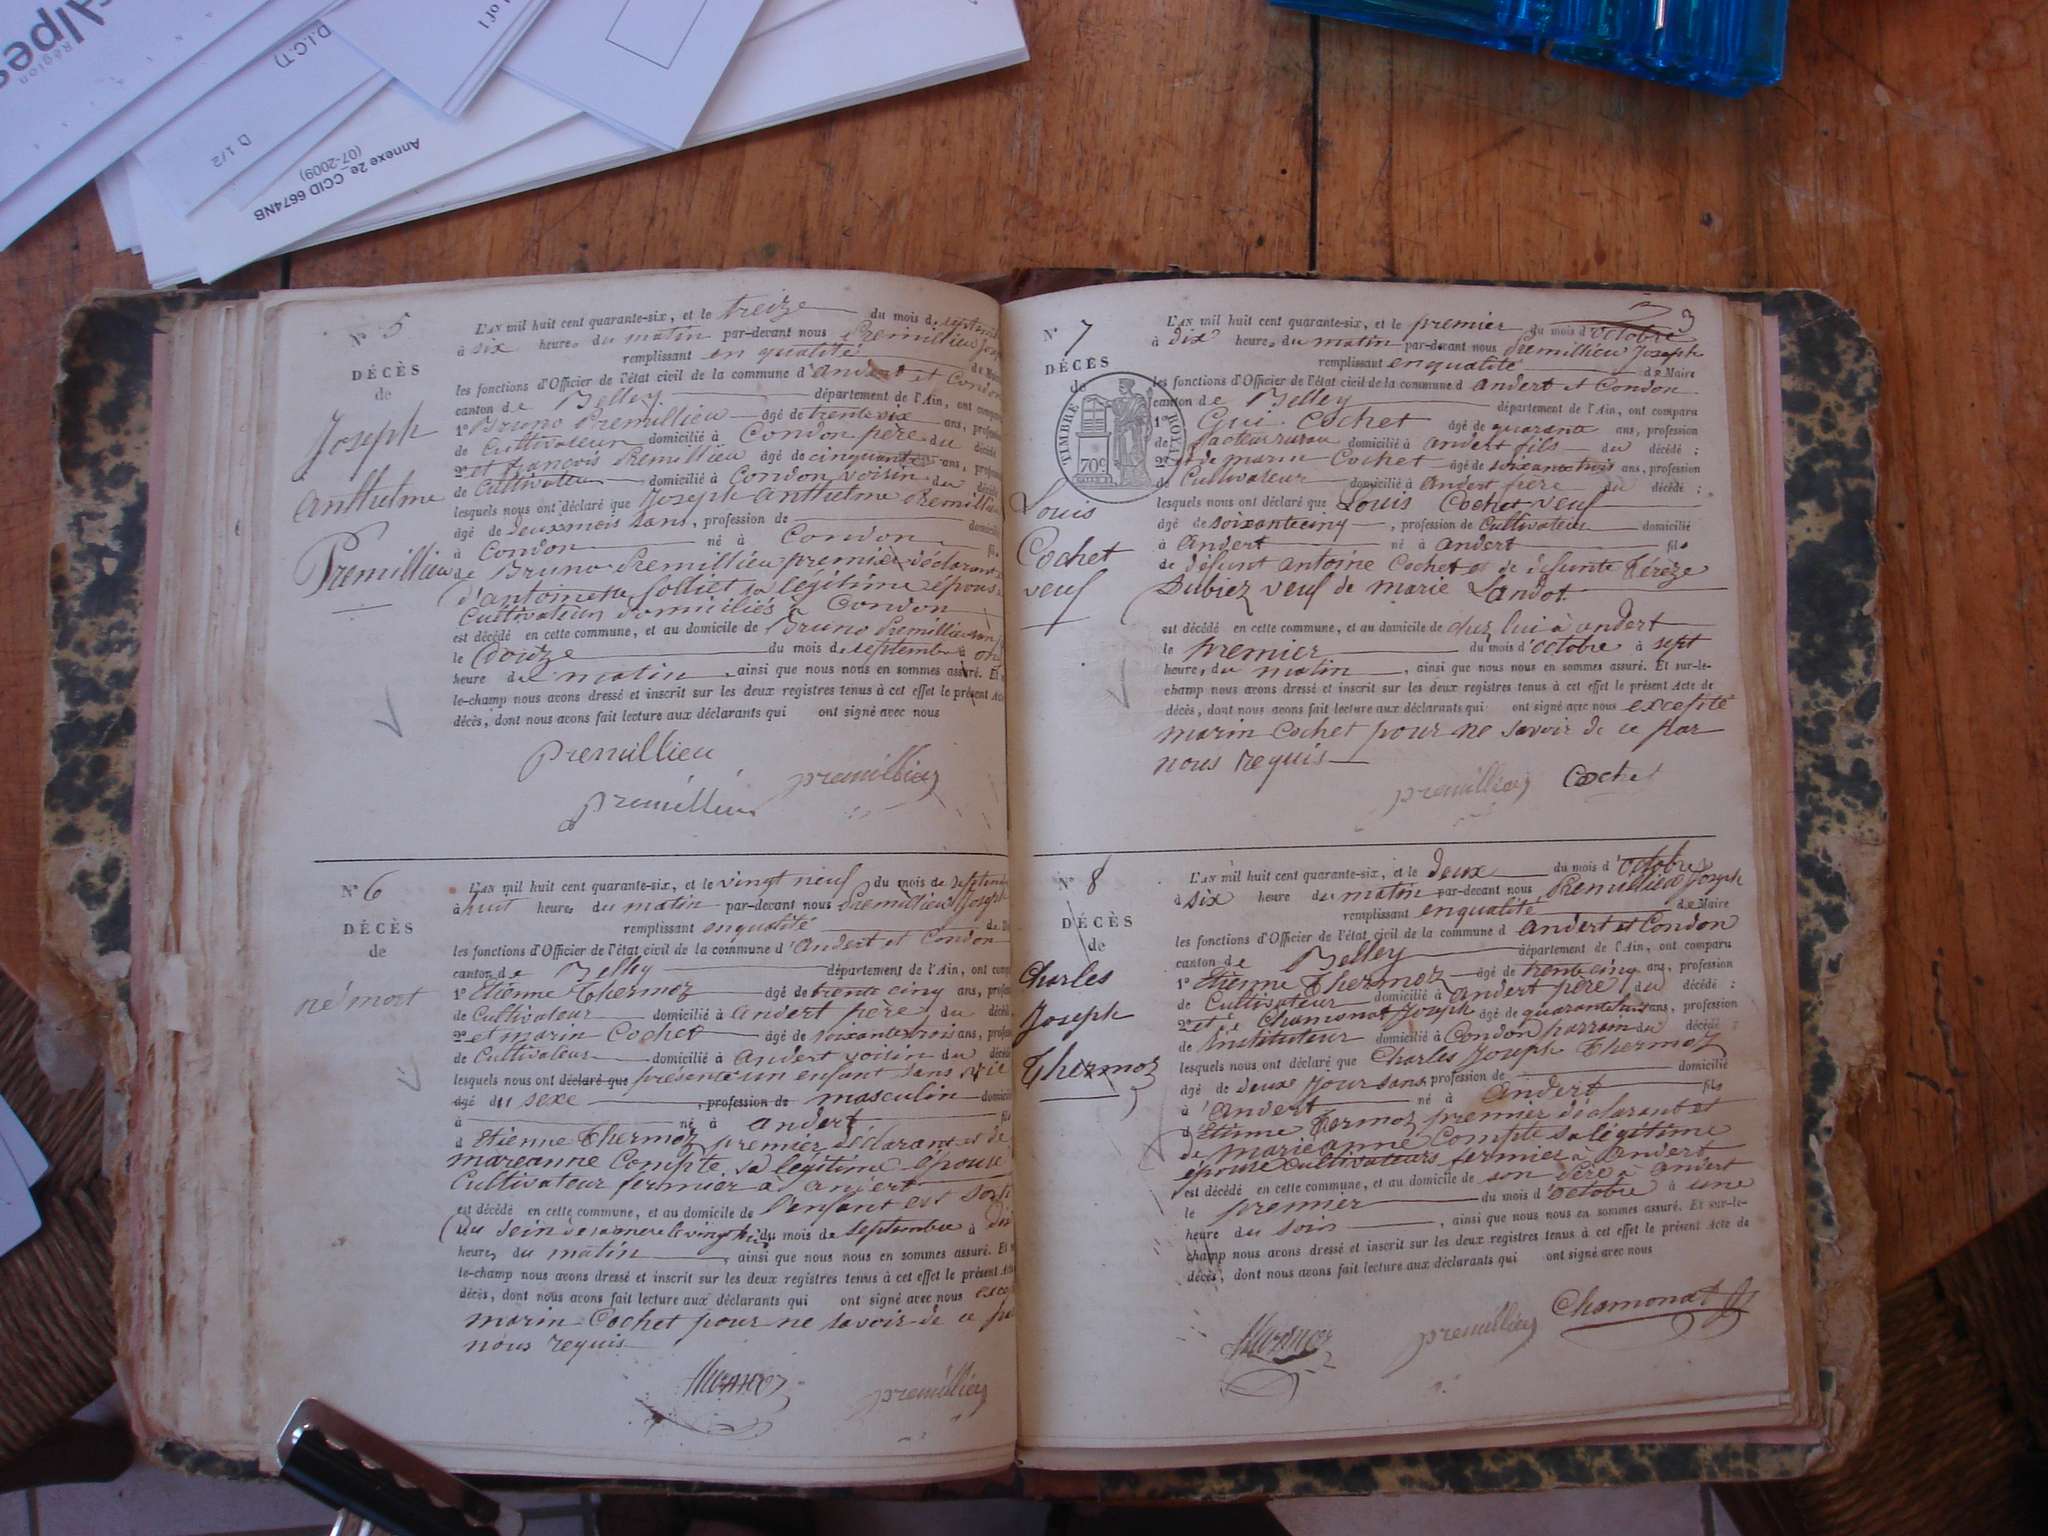 Alpes
Région
D.I.C.T)
D 1/2
of 1
Annexe 2e_CCID 6674NB
(07-2009)
N° 5
DÉCÈS
de
Joseph
Anthelme
Premillieu
L'AN mil huit cent quarante-six, et le treize du mois de septemb
à six heures du matin par-devant nous Premillieu Jose
remplissant en qualité de Mai
les fonctions d'Officier de l'état civil de la commune d'andert et Condon
canton de Belley département de l'Ain, ont compar
1° Bruno Premillieu âgé de trente six ans, profession
de Cultivateur domicilié à Condon père du décédé
2° et françois Premillieu âgé de cinquante ans, profe
de Cultivateur domicilié à Condon voisin du décédé
lesquels nous ont déclaré que Joseph Anthelme Premillieu
âgé de deux mois sans, profession de domicili
à Condon né à Condon fils
de Bruno Premillieu premier déclarant
d'antoinette Jolliet sa légitime épouse
Cultivateurs domiciliés à Condon
est décédé en cette commune, et au domicile de Bruno Premillieu son
le Douze du mois de septembre à on
heure du matin, ainsi que nous nous en sommes assuré. Et
le-champ nous avons dressé et inscrit sur les deux registres tenus à cet effet le présent Acte
décès, dont nous avons fait lecture aux déclarants qui ont signé avec nous
premillieu
premillieu
premillieu
N° 6
DÉCÈS
de
né mort
L'AN mil huit cent quarante-six, et le vingt neuf du mois de septem
à huit heures du matin par-devant nous Premillieu Joseph
remplissant en qualité de M
les fonctions d'Officier de l'état civil de la commune d'andert et Condon
canton de Belley département de l'Ain, ont comp
1° Etienne Thermoz âgé de trente cinq ans, profes
de Cultivateur domicilié à andert père du décéd
2° et marin Cochet âgé de soixante trois ans, profes
de Cultivateur domicilié à andert voisin du décéd
lesquels nous ont déclaré que présenté un enfant sans vie
âgé du sexe, profession de masculin domicil
à né à andert fils
d Etienne Thermoz premier déclarant et de
marianne Compte sa légitime épouse
Cultivateur fermier à andert
est décédé en cette commune, et au domicile de l'enfant est sorti
du sein de sa mere le vingt huit du mois de septembre à dix
heures du matin, ainsi que nous nous en sommes assuré. Et
le-champ nous avons dressé et inscrit sur les deux registres tenus à cet effet le présent Acte
décès, dont nous avons fait lecture aux déclarants qui ont signé avec nous excep
marin Cochet pour ne savoir de ce pa
nous requis
thermoz
premillieu
3
N° 7
DÉCÈS
de
TIMBRE ROYAL
70c
Louis
Cochet
veuf
L'AN mil huit cent quarante-six, et le premier du mois d'octobre
à dix heures du matin par-devant nous Premillieu Joseph
remplissant en qualité de Maire
les fonctions d'Officier de l'état civil de la commune d andert et Condon
canton de Belley département de l'Ain, ont comparu
1° Gui Cochet âgé de quarante ans, profession
de facteur rural domicilié à andert fils du décédé ;
2° et de marin Cochet âgé de soixante trois ans, profession
de Cultivateur domicilié à andert père du décédé ;
lesquels nous ont déclaré que Louis Cochet veuf
âgé de soixante cinq, profession de Cultivateur domicilié
à andert né à andert fils
de défunt antoine Cochet et de défunte Téreze
Dubiez veuf de marie Landot
est décédé en cette commune, et au domicile de chez lui à andert
le premier du mois d'octobre à sept
heures du matin, ainsi que nous nous en sommes assuré. Et sur-le-
champ nous avons dressé et inscrit sur les deux registres tenus à cet effet le présent Acte de
décès, dont nous avons fait lecture aux déclarants qui ont signé avec nous excepté
marin Cochet pour ne savoir de ce par
nous requis
premillieu Cochet
N° 8
DÉCÈS
de
Charles
Joseph
Thermoz
L'AN mil huit cent quarante-six, et le deux du mois d'octobre
à six heure du matin par-devant nous Premillieu Joseph
remplissant en qualité de Maire
les fonctions d'Officier de l'état civil de la commune d andert et Condon
canton de Belley département de l'Ain, ont comparu
1° Etienne Thermoz âgé de trente cinq ans, profession
de Cultivateur domicilié à andert père du décédé :
2° et Chamonat Joseph âgé de quarante huit ans, profession
de Instituteur domicilié à Condon parrain du décédé :
lesquels nous ont déclaré que Charles Joseph Thermoz
âgé de deux jour sans profession de domicilié
à andert né à Andert fils
d'Etienne Termoz premier déclarant et
de marie anne Compte sa légitime
épouse Cultivateurs fermier à andert
est décédé en cette commune, et au domicile de son père à andert
le premier du mois d'octobre à une
heure du soir, ainsi que nous nous en sommes assuré. Et sur-le-
champ nous avons dressé et inscrit sur les deux registres tenus à cet effet le présent Acte de
décès, dont nous avons fait lecture aux déclarants qui ont signé avec nous
thermoz
premillieu
Chamonat J